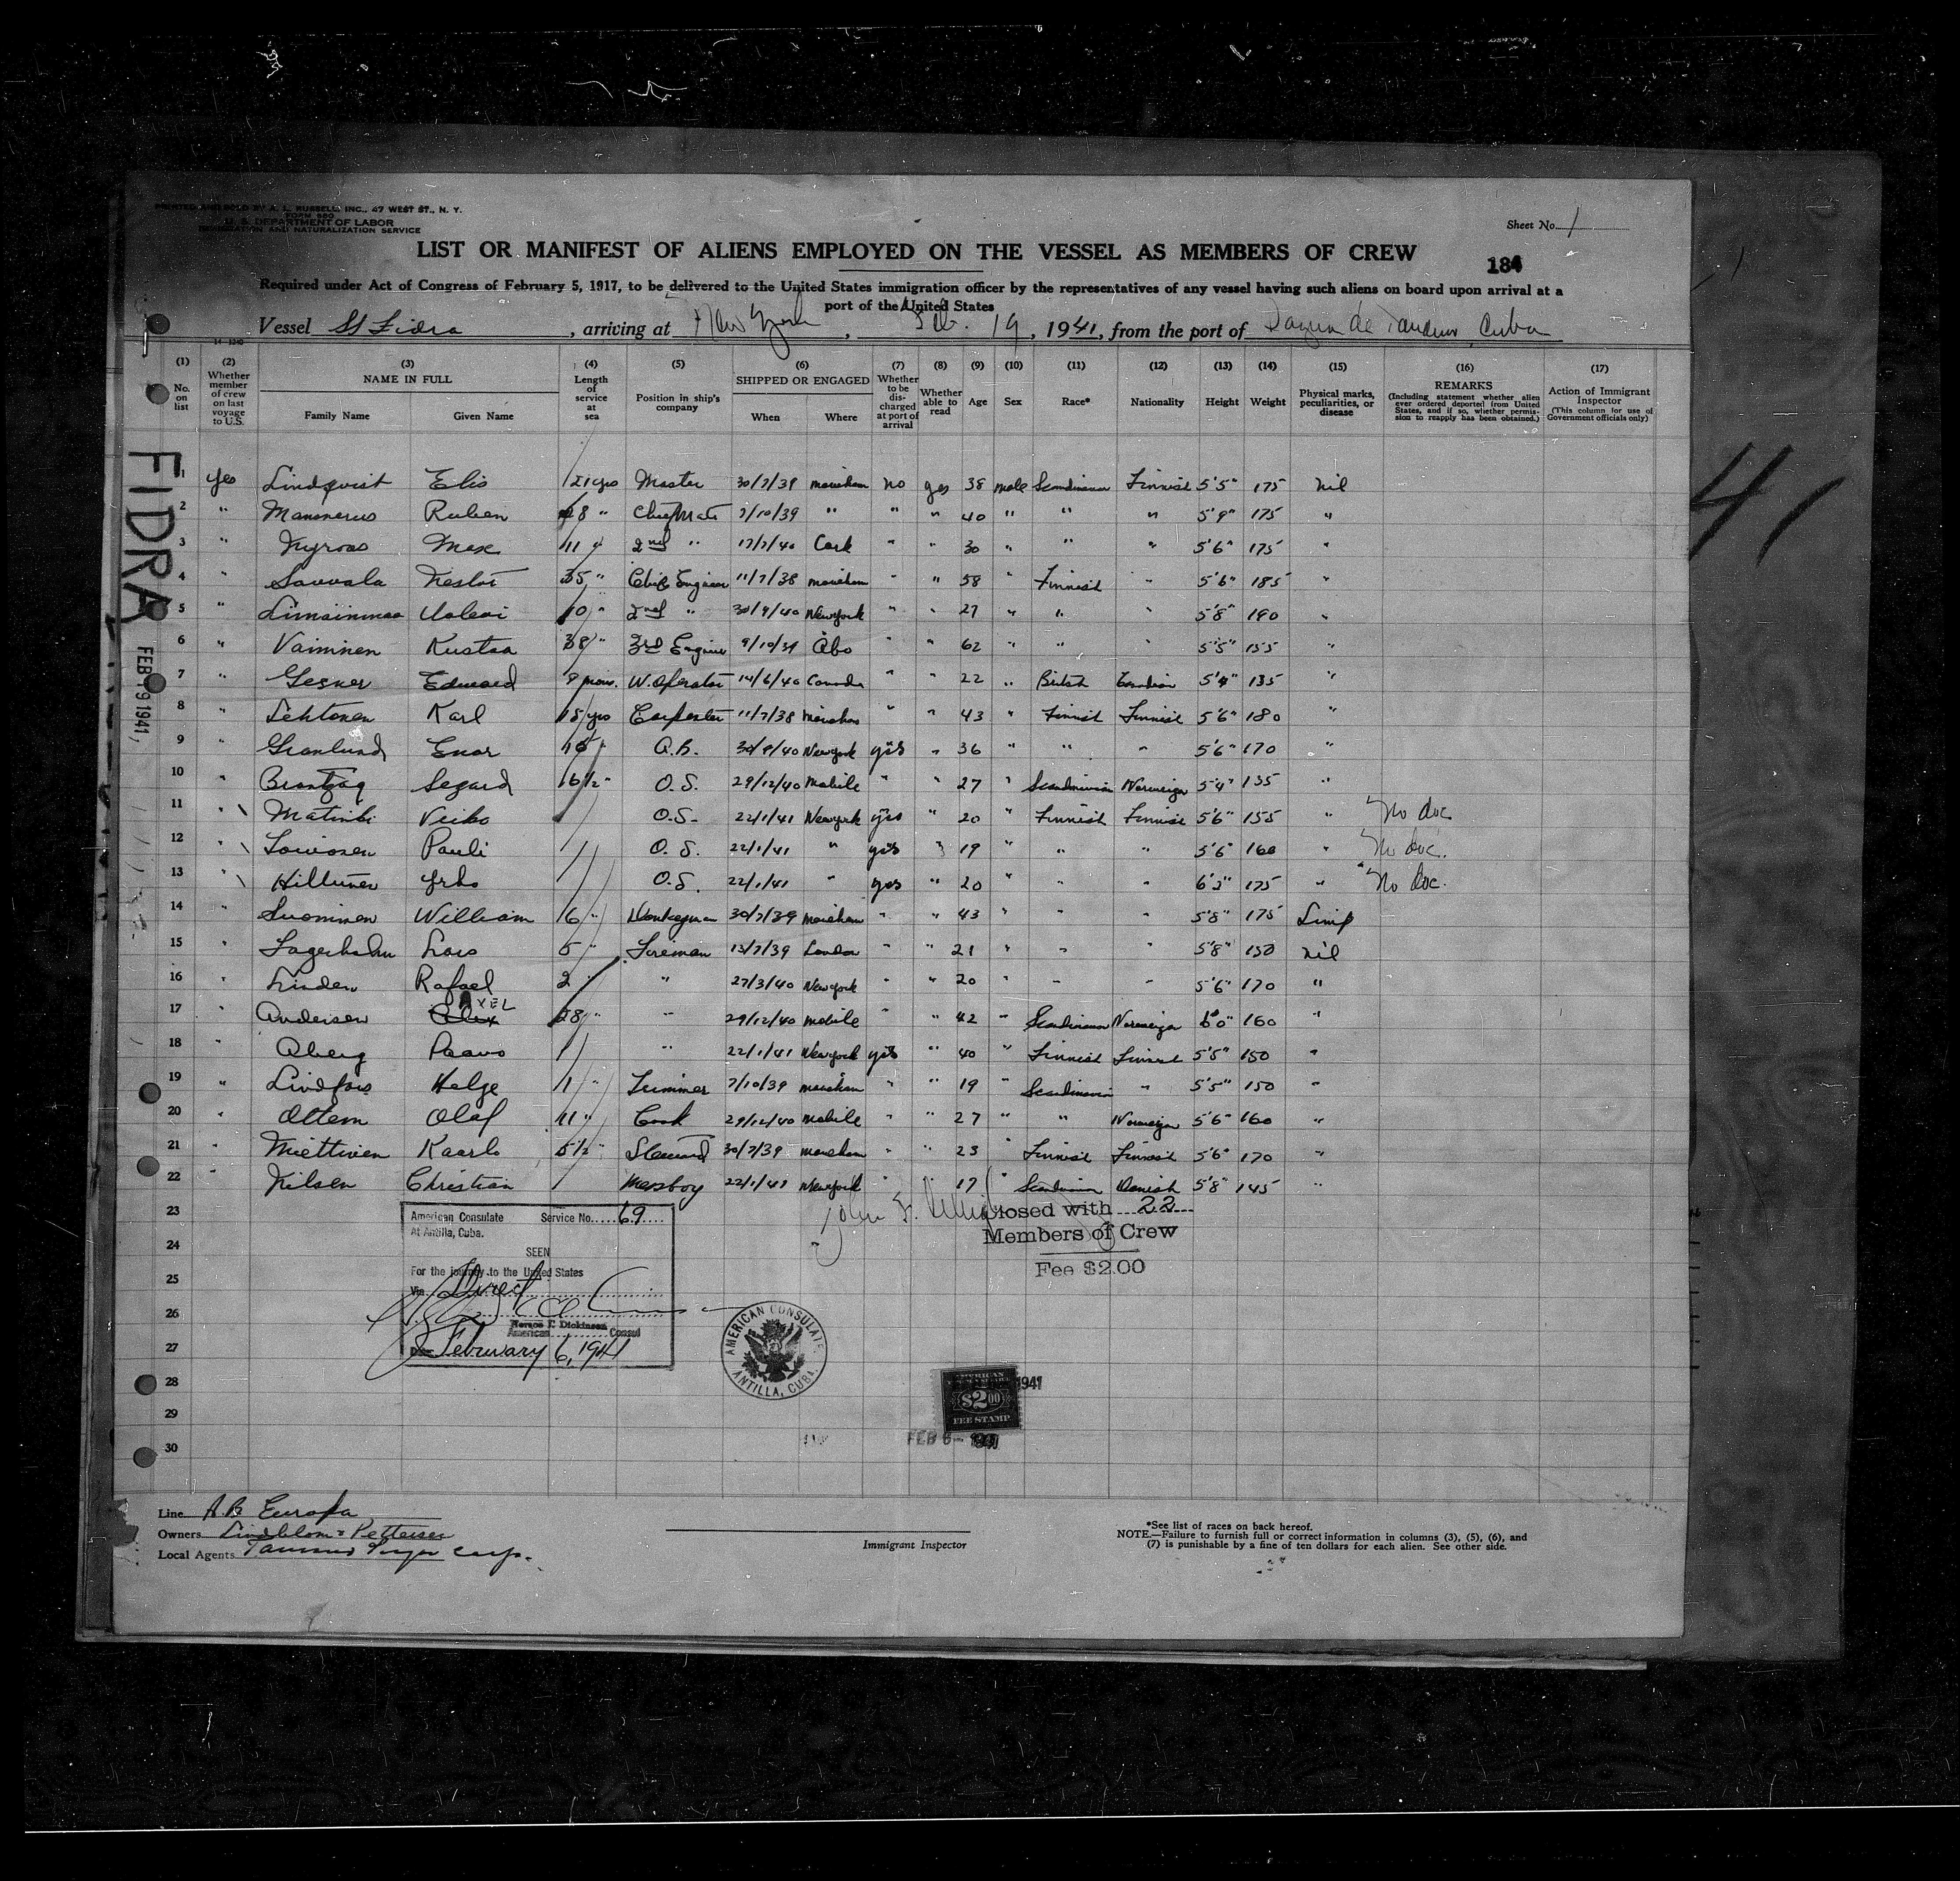 PRINTED AND SOLD BY A. L. RUSSELL, INC., 47 WEST ST., N. Y.
FORM 680
U. S. DEPARTMENT OF LABOR
IMMIGRATION AND NATURALIZATION SERVICE
Sheet No. 1
LIST OR MANIFEST OF ALIENS EMPLOYED ON THE VESSEL AS MEMBERS OF CREW
184
Required under Act of Congress of February 5, 1917, to be delivered to the United States immigration officer by the representatives of any vessel having such aliens on board upon arrival at a
port of the United States
Vessel SS Fidra, arriving at New York, Feb. 19, 1941, from the port of Sagua de Tanamo, Cuba
(1) No. on list
(2) Whether member of crew on last voyage to U.S.
(3) NAME IN FULL Family Name Given Name
(4) Length of service at sea
(5) Position in ship's company
(6) SHIPPED OR ENGAGED When Where
(7) Whether to be discharged at port of arrival
(8) Whether able to read
(9) Age
(10) Sex
(11) Race*
(12) Nationality
(13) Height
(14) Weight
(15) Physical marks, peculiarities, or disease
(16) REMARKS (Including statement whether alien ever ordered deported from United States, and if so, whether permission to reapply has been obtained.)
(17) Action of Immigrant Inspector (This column for use of Government officials only)
FIDRA
FEB 19 1941
41
1 yes Lindqvist Elis 21 yrs Master 30/7/39 Marieham no yes 38 male Scandinavian Finnish 5'5" 175 nil
2 " Mansnerus Ruben 28 " Chief Mate 7/10/39 " " " 40 " " " 5'9" 175 "
3 " Nyroos Max 11 " 2nd " 17/7/40 Cork " " 30 " " " 5'6" 175 "
4 " Sauvala Nestor 35 " Chief Engineer 11/7/38 Marieham " " 58 " Finnish " 5'6" 185 "
5 " Liinsinmaa Uolevi 10 " 2nd " 30/9/40 New york " " 27 " " " 5'8" 190 "
6 " Vaininen Kustaa 38 " 3rd Engineer 9/10/39 Åbo " " 62 " " " 5'5" 155 "
7 " Gesner Edward 8 mons. W. Operator 14/6/40 Canada " " 22 " British Canadian 5'4" 135 "
8 " Lehtonen Karl 18 yrs Carpenter 11/7/38 Marieham " " 43 " Finnish Finnish 5'6" 180 "
9 " Granlund Enar 16 " A.B. 30/9/40 New york yes " 36 " " " 5'6" 170 "
10 " Segard 6 1/2 " O.S. 29/12/40 Mobile " " 27 " Scandinavian Norwegian 5'4" 135 "
11 " Veiko O.S. 22/1/41 New york yes " 20 " Finnish Finnish 5'6" 155 " No doc.
12 " Toivonen Pauli 1 O.S. 22/1/41 " yes " 19 " " " 5'6" 160 " No doc.
13 " Yrho 1 O.S. 22/1/41 " yes " 20 " " " 6'2" 175 " No doc.
14 " Suominen William 6 " Donkeyman 30/7/39 Marieham " " 43 " " " 5'8" 175 Limp
15 " Lagerholm Lars 5 " Fireman 13/7/39 London " " 21 " " " 5'8" 150 nil
16 " Linden Rafael 2 " " 27/3/40 New york " " 20 " " " 5'6" 170 "
AXEL
17 " Andersen Alex 28 " " 29/12/40 Mobile " 42 " Scandinavian Norwegian 6'0" 160 "
18 " Aberg Paavo 1 " 22/1/41 New york yes " 40 " Finnish Finnish 5'5" 150 "
19 " Lindfors Helge 1 " Trimmer 7/10/39 Marieham " " 19 " Scandinavian " 5'5" 150 "
20 " Ottem Olaf 11 " Cook 29/12/40 Mobile " " 27 " " Norwegian 5'6" 160 "
21 " Miettinen Kaarlo 5 1/2 " Steward 30/7/39 Marieham " " 23 " Finnish Finnish 5'6" 170 "
22 " Nilsen Christian 1 Messboy 22/1/41 New york " " 17 " Scandinavian Danish 5'8" 145 "
23
24
25
26
27
28
29
30
American Consulate Service No. 69
At Antilla, Cuba.
SEEN
For the journey to the United States
Via Direct
Horace J. Dickinson
American Consul
Date February 6, 1941
Closed with 22
Members of Crew
Fee $2.00
AMERICAN CONSULATE
ANTILLA, CUBA
AMERICAN
$2.00
FEE STAMP
1941
FEB 6 - 1941
Line A.B. Europa
Owners Lindblom & Petterson
Local Agents Tanamo Sugar Corp.
Immigrant Inspector
*See list of races on back hereof.
NOTE.—Failure to furnish full or correct information in columns (3), (5), (6), and
(7) is punishable by a fine of ten dollars for each alien. See other side.